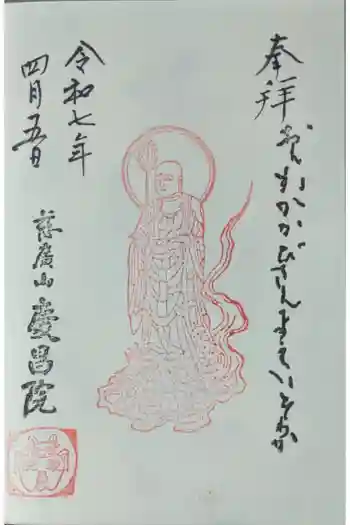 奉拝
おんかかかびさんまえいそわか
令和七年
四月五日
慈廣山 慶昌院